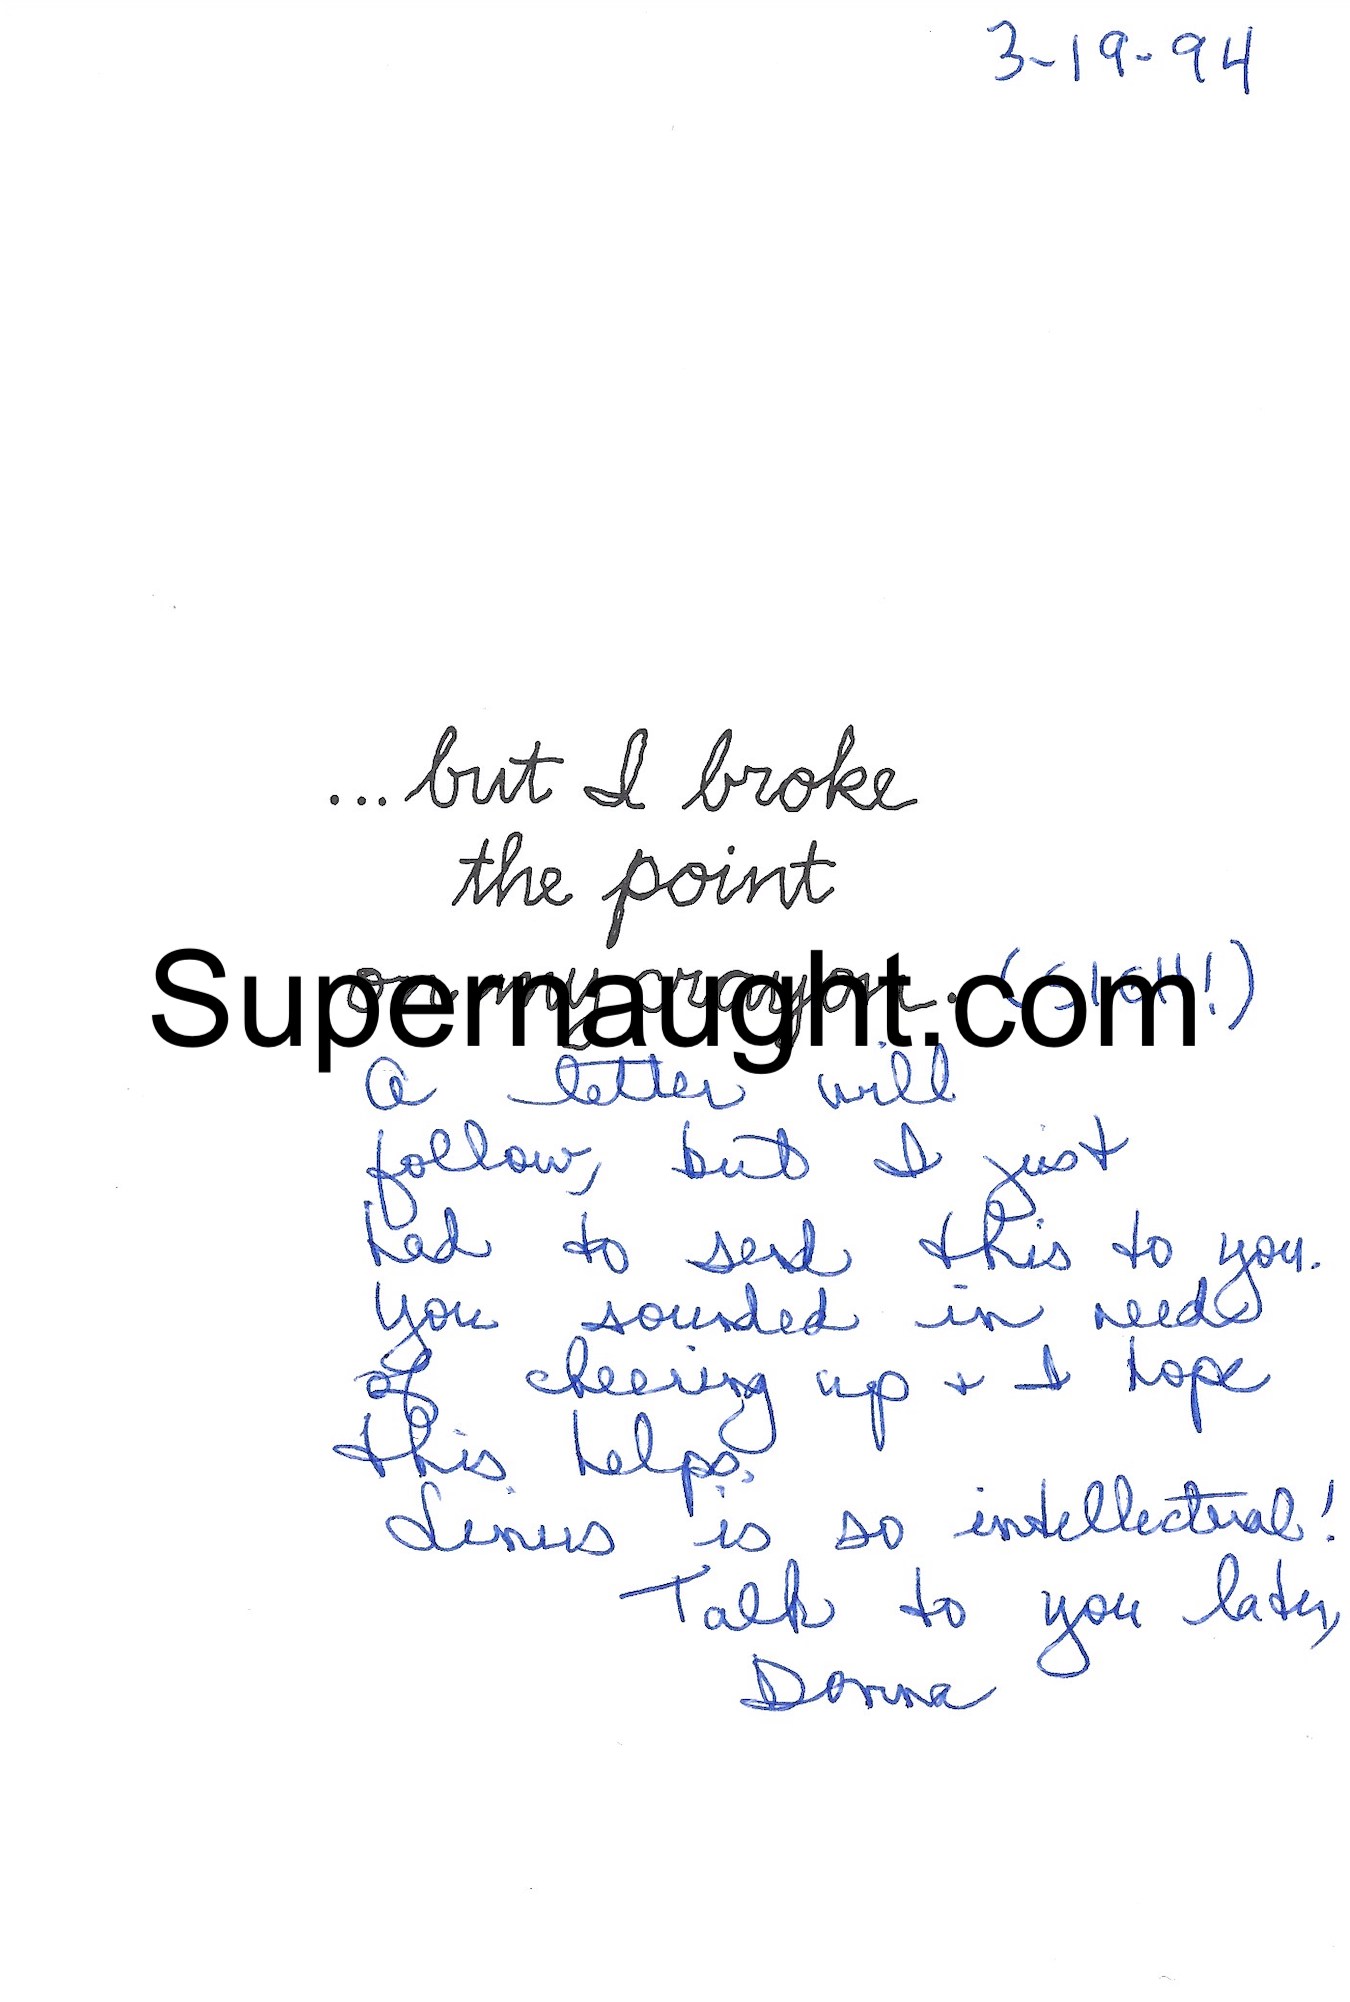 3-19-94
...but I broke
the point
on my crayon.
(SIGH!)
Supernaught.com
A letter will
follow, but I just
had to send this to you.
You sounded in need
of cheering up & I hope
this helps.
Linus is so intellectual!
Talk to you later,
Donna